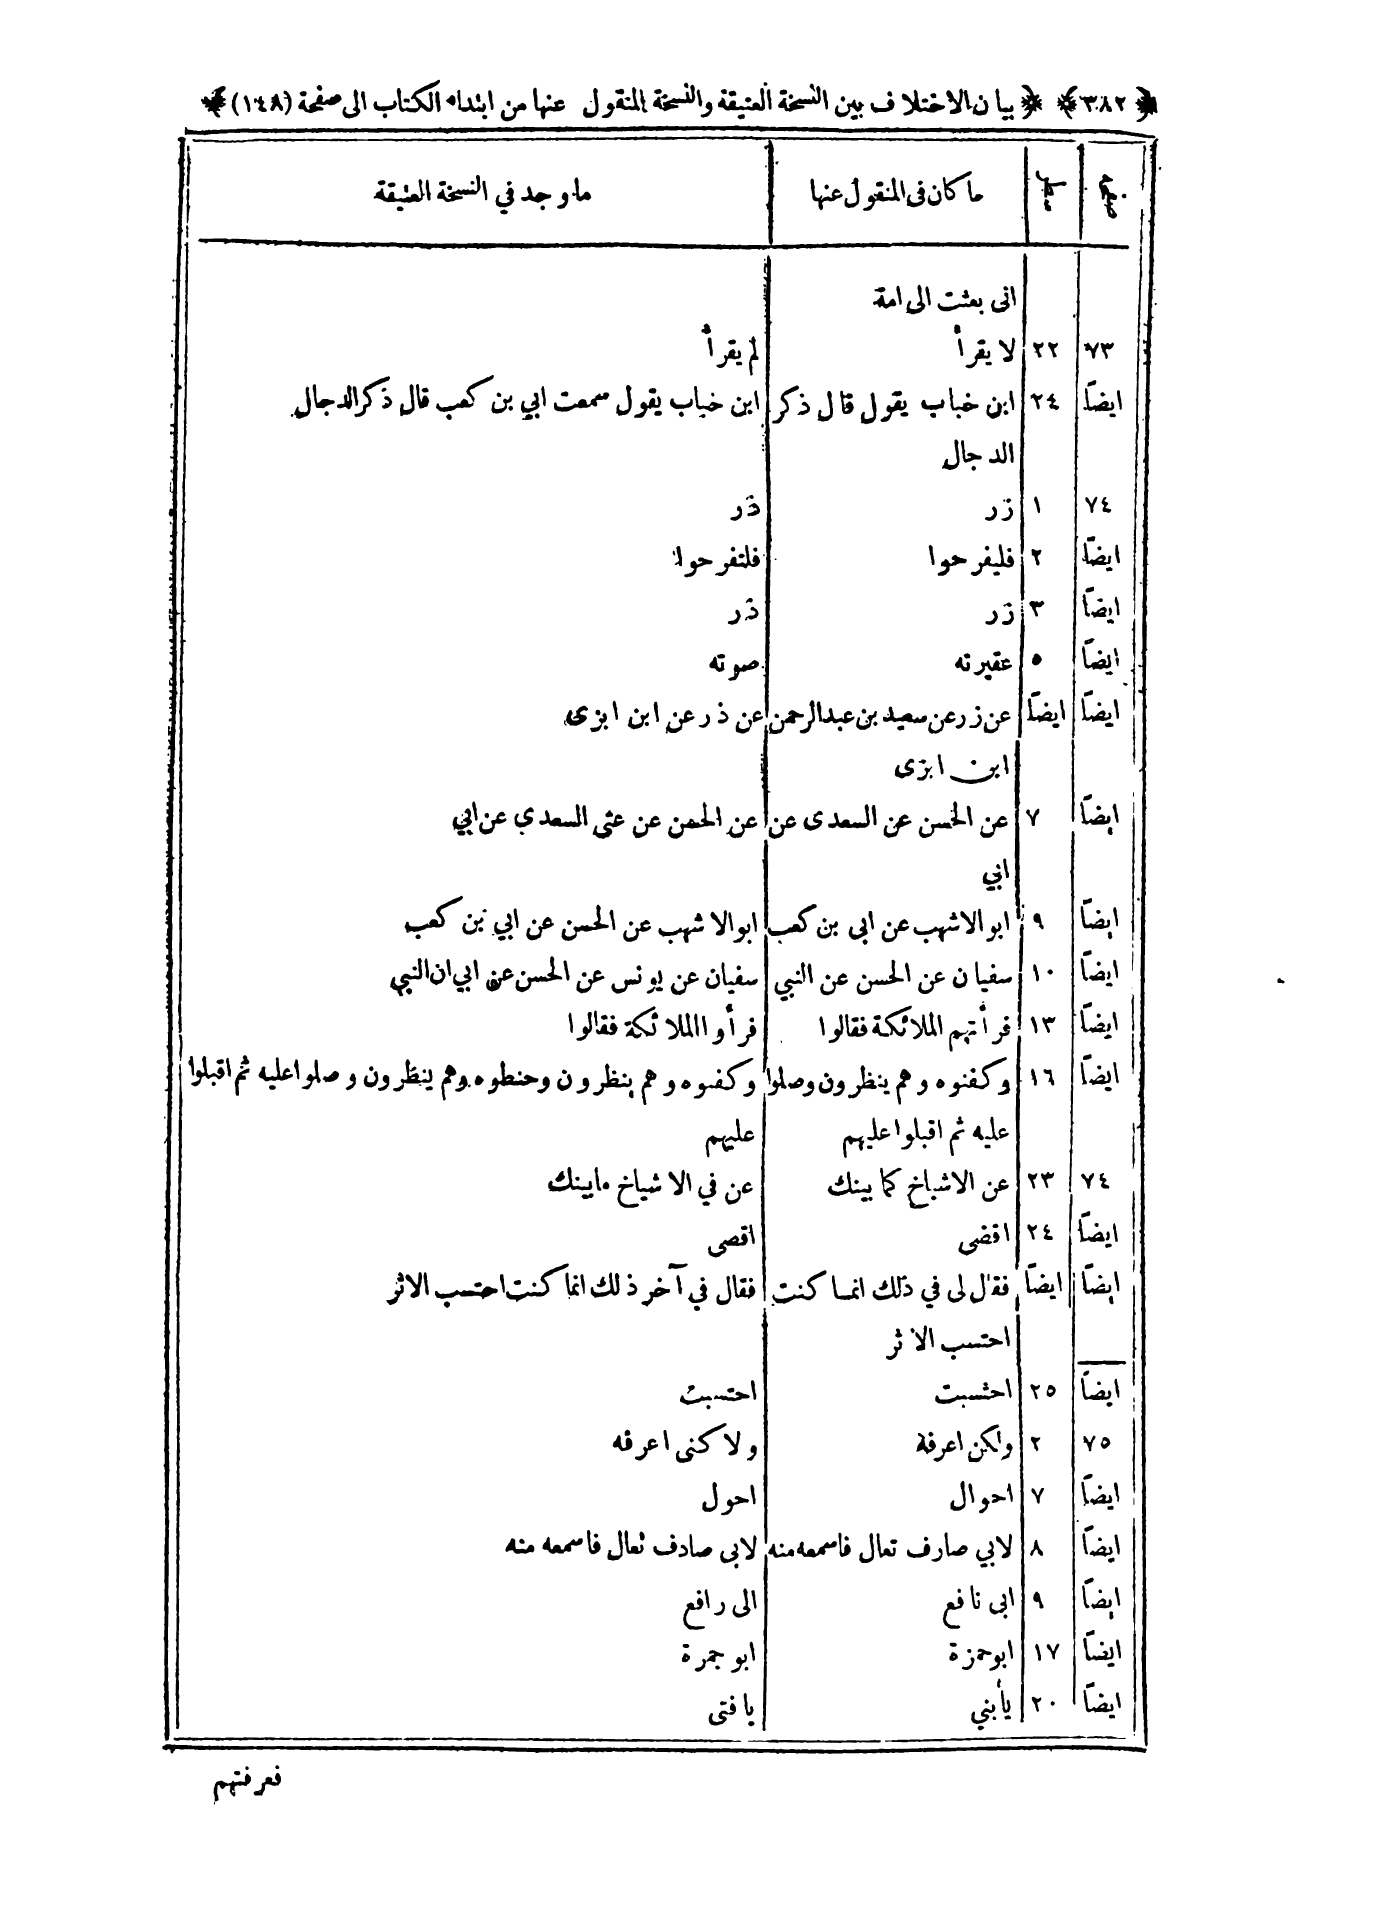 ﴿٣٨٢﴾ ﴿بيان الاختلاف بين النسخة العتيقة والنسخة المنقول عنها من ابتداء الكتاب الى صفحة (١٤٨)﴾
صفحة سطر ما كان فى المنقول عنها ما وجد في النسخة العتيقة
انى بعثت الى امة
٧٣ ٢٢ لا يقرأ لم يقرأ
ايضاً ٢٤ ابن خباب يقول قال ذكر ابن خباب يقول سمعت ابي بن كعب قال ذكر الدجال
الدجال
٧٤ ١ زر ذر
ايضاً ٢ فليفرحوا فلتفرحوا
ايضاً ٣ زر ذر
ايضاً ٥ عقيرته صوته
ايضاً ايضاً عن زر عن سعيد بن عبد الرحمن عن ذر عن ابن ابزى
ابن ابزى
ايضاً ٧ عن الحسن عن السعدى عن عن الحسن عن عتى السعدي عن ابي
ابي
ايضاً ٩ ابو الاشهب عن ابى بن كعب ابو الاشهب عن الحسن عن ابي بن كعب
ايضاً ١٠ سفيان عن الحسن عن النبي سفيان عن يونس عن الحسن عن ابي ان النبي
ايضاً ١٣ فرأتهم الملائكة فقالوا فرأوا الملائكة فقالوا
ايضاً ١٦ وكفنوه وهم ينظرون وصلوا وكفنوه وهم ينظرون وحنطوه وهم ينظرون وصلوا عليه ثم اقبلوا
عليه ثم اقبلوا عليهم عليهم
٧٤ ٢٣ عن الاشباخ كما يينك عن في الاشياخ ما يينك
ايضاً ٢٤ اقضى اقصى
ايضاً ايضاً فقال لى في ذلك انما كنت فقال في آخر ذلك انما كنت احتسب الاثر
احتسب الاثر
ايضاً ٢٥ احتسبت احتسبت
٧٥ ٢ ولكن اعرفة ولا كنى اعرفه
ايضاً ٧ احوال احول
ايضاً ٨ لابي صارف تعال فاسمعه منه لابى صادف تعال فاسمعه منه
ايضاً ٩ ابى نافع الى رافع
ايضاً ١٧ ابو حمزة ابو جمرة
ايضاً ٢٠ يأبني يا فتى
فعرفتهم